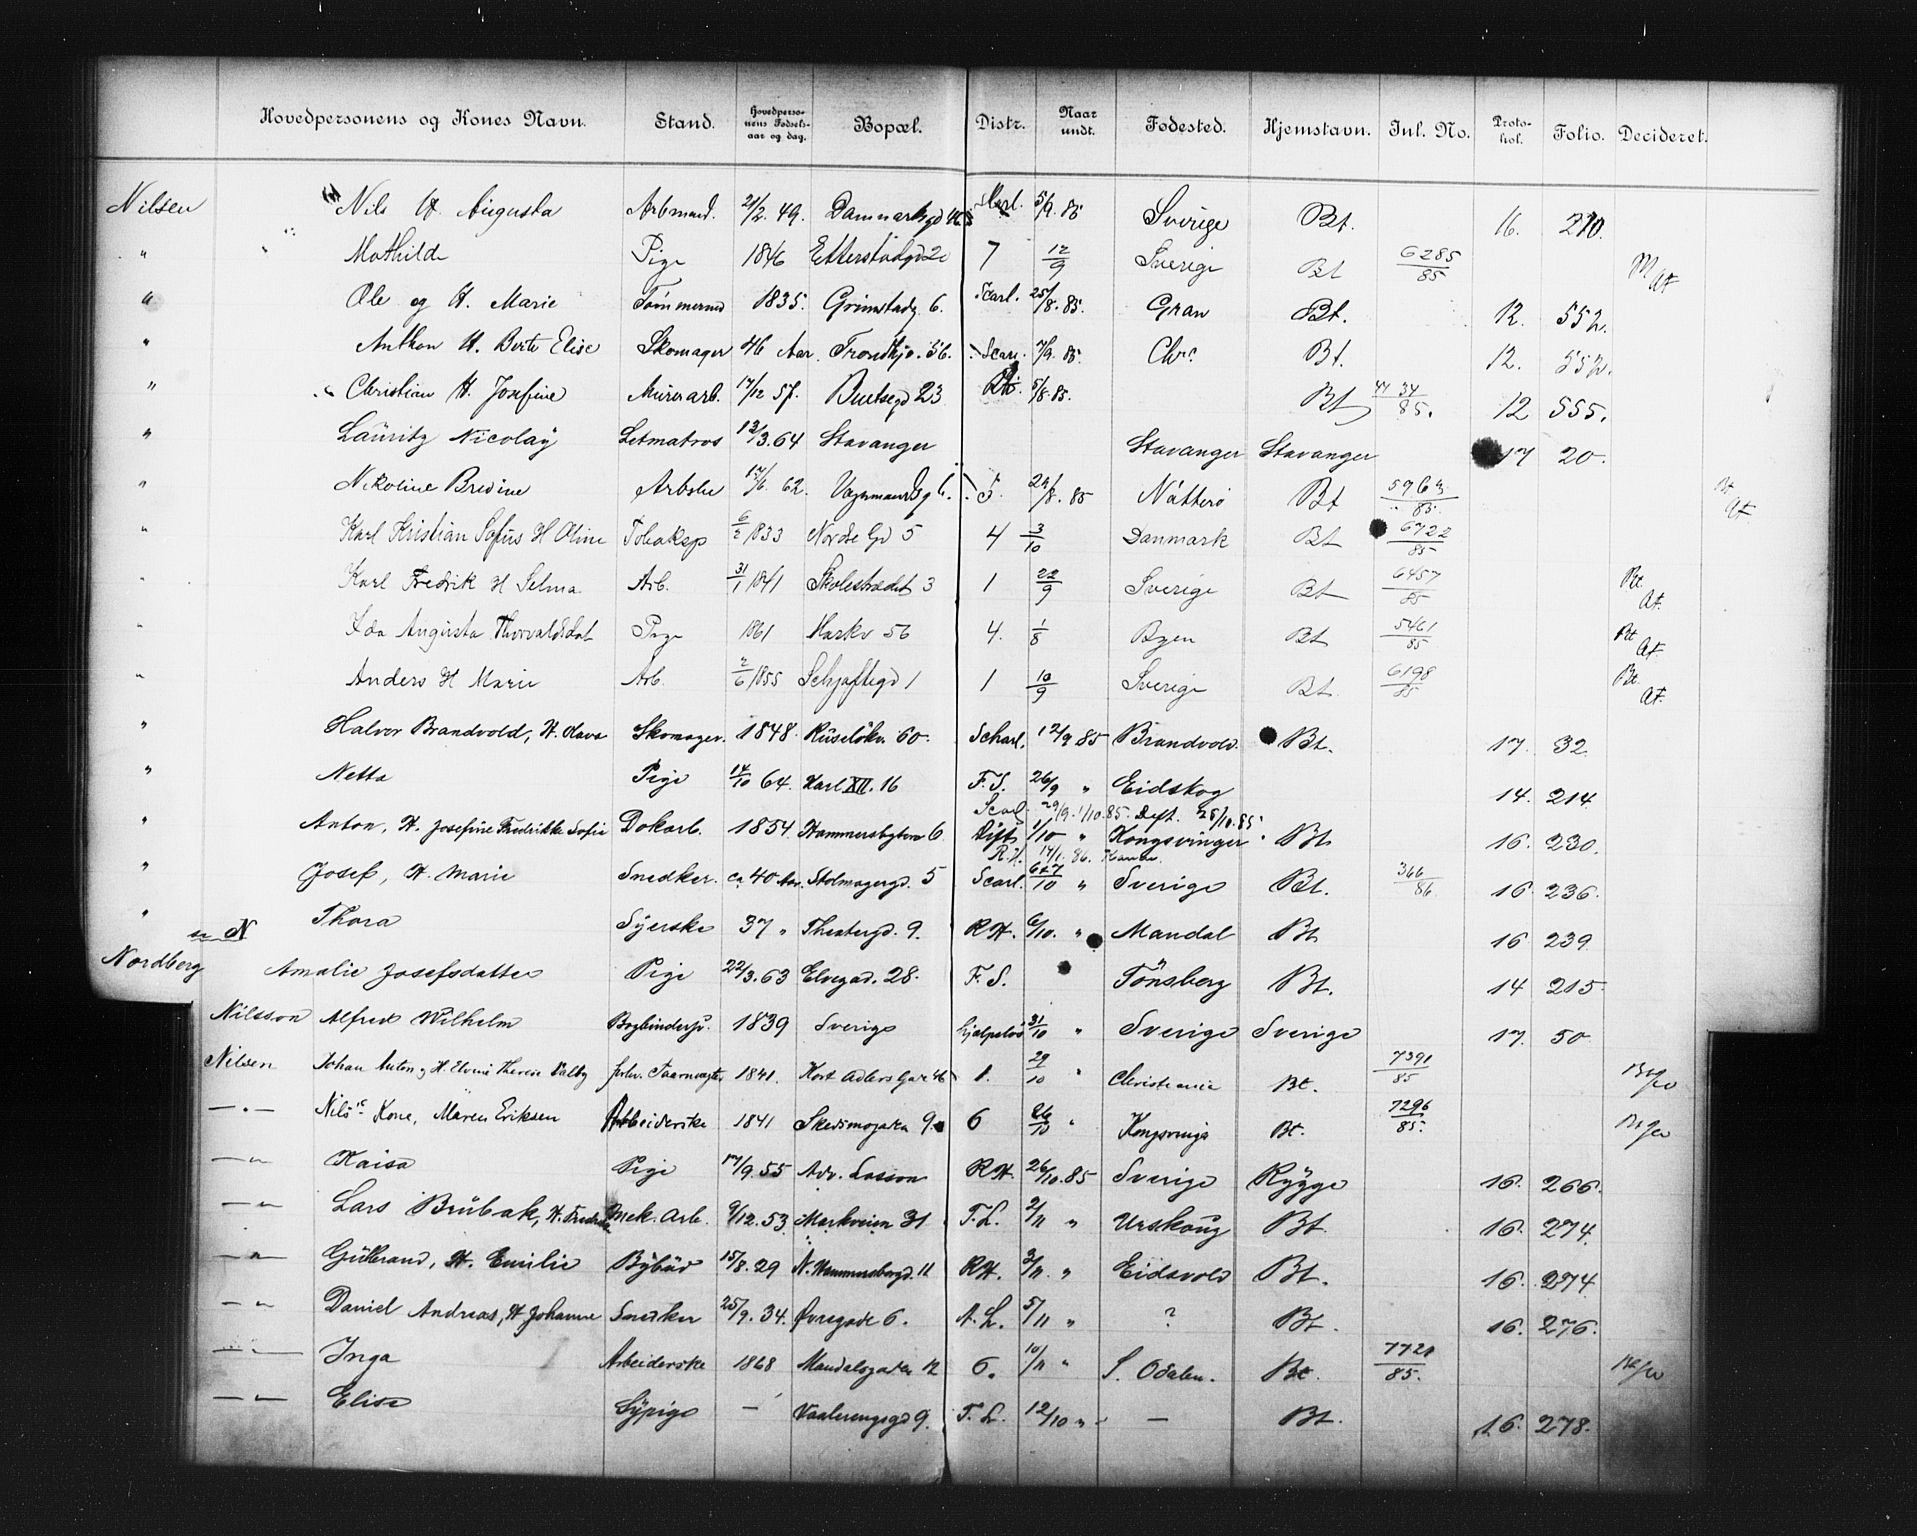 Hovedpersonens og Kones Navn. Stand. Hovedpersonens Fødselsaar og dag. Bopæl. Distr. Naar undt. Fødested. Hjemstavn. Inl. No. Protokol. Folio. Decideret.
Nilsen Nils H. Augusta Arbmand. 21/2. 49. Danmarksgd 5/9. 85 Sverige Bt. 16. 210.
" Mathilde Pige 1846 Etterstadgd 7 12/9 Sverige Bt 6285/85 At
" Ole og H. Marie Tømmermd 1835. Grimstadg. 6. Scarl. 25/8. 85. Gran Bt. 12. 552.
" Anthon H. Berte Elise Skomager 46 Aar. Trondhj. 56. Scarl. 7/9. 85. Chra Bt. 12. 552.
" Christian H. Josefine Murerarb. 17/12 57. 23 5/8. 85. Bt 4134/85. 12 555.
" Lauritz Nicolay Letmatros 13/3. 64 Stavanger Stavanger Stavanger 17 20.
" Nikoline Bredine Arbske 17/6. 62. 5. 24/8. 85 Nøtterø Bt 5963/85. Bt At
" Karl Kristian Sofus H Oline 6/2 1833 Nordre Gd 5 4 3/10 Danmark Bt 6722/85
" Karl Fredrik H Selma Arb. 31/1 1841 Skolestrædet 3 1 22/9 Sverige Bt 6457/85 Bt. At.
" Ida Augusta Thorvaldsdat Pige 1861 Markv 56 4. 1/8 Byen Bt 5461/85 Bt At.
" Anders H Marie Arb. 2/6 1855 Schjøftegd 1 1 10/9 Sverige Bt. 6198/85 Bt. At.
" Halvor Brandvold, H. Olava Skomager. 1848. Ruseløkv. 60. Scharl. 12/9 85 Brandvold. Bt. 17. 32.
" Netta Pige 14/10 64. Karl XII. 16 F.S. 26/9 " Eidskog 14. 214.
Scarl. 29/9. 1/10. 85. Deft. 25/10. 85.
" Anton, H. Josefine Fredrikke Sofie Dokarb. 1854. Hammersbgbon 6. Dift. 1/10 " Kongsvinger. Bt. 16. 230.
R.H. 14/1. 86.
" Josef, H. Marie Snedker. ca 40 Aar. Stolmagergd. 5 Scarl. 6&7/10 " Sverige Bt. 366/86. 16. 236.
" Thora Syerske 37 " Theatergd. 9. R.H. 6/10. " Mandal Bt 16. 239.
se N
Nordberg Amalie Josefsdatter Pige 22/3. 63 Elvegad. 28. F.S. Tönsberg Bt. 14 215.
Nilsson Alfred Wilhelm Bogbindersv. 1839 Sverige Hjælpeløs 31/10 " Sverige Sverige 17. 50
Nilsen Johan Anton, H. Elvine Therese Valby forhv. Taarnvægter 1841. Kort Adlers Gade 46 1. 29/10 " Christiania Bt. 7391/85
— " — Nils's Kone, Maren Eriksen Arbeiderske 1841 Skedsmogaten 9. 6 26/10 " Kongsvinger Bt. 7296/85.
— " Kaisa Pige 17/9. 55 Adv. Lasson R.H. 26/10. 85 Sverige Rygge 16. 266.
— " Lars Brubak, H. Fredrikke Mek. Arb. 9/12. 53. Markveien 31 F.L. 2/11 " Urskoug Bt. 16. 274.
— " Gulbrand, H. Emilie Bybud 15/8. 29 N. Hammersborgd. 11 R.H. 3/11. " Eidsvold Bt. 16. 274.
— " Daniel Andreas, H Johanne Snedker 25/9. 34. Øvregade 6. A.L. 5/11 " ? Bt. 16. 276.
— " — Inga Arbeiderske 1868 Mandalsgaden 12 6. 10/11 " S. Odalen. Bt. 7721/85.
— " Elise Sypige — Vaalerengsgd 9. F.L. 12/10 " — Bt. 16. 278.